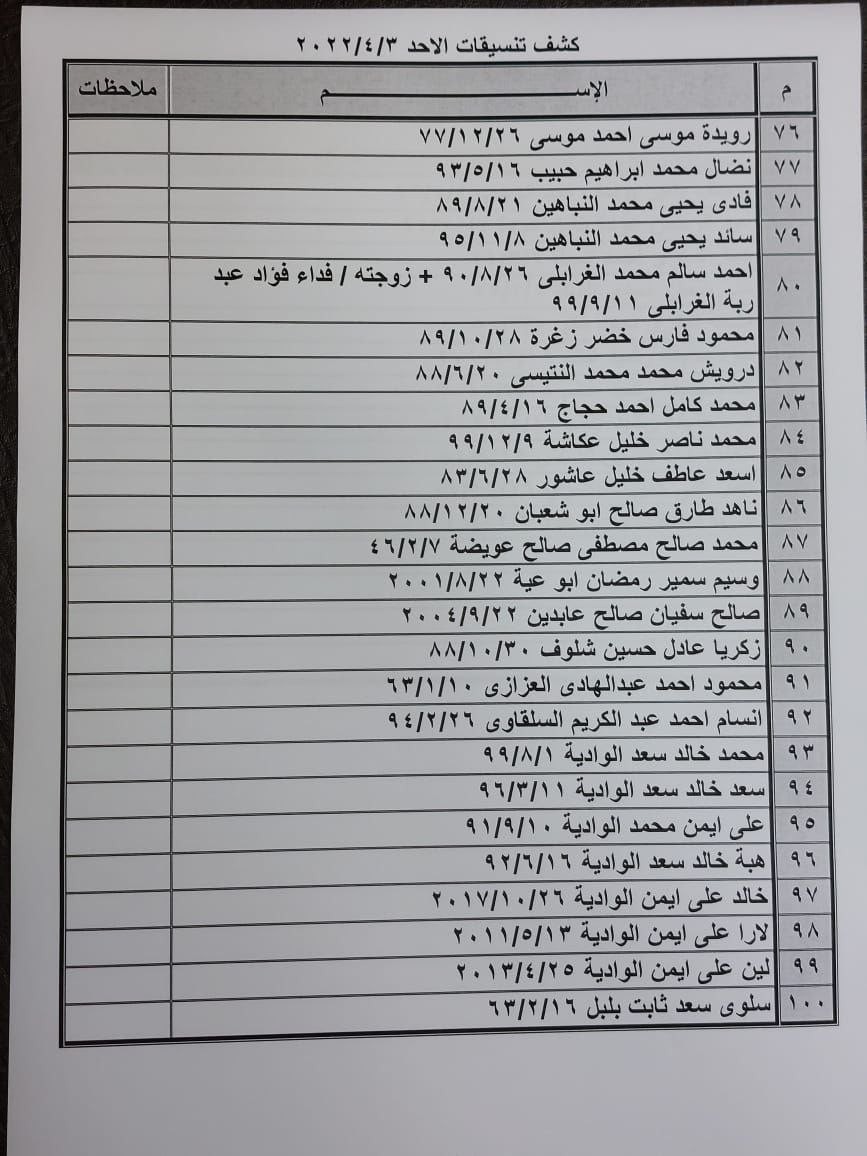 كشف تنسيقات الاحد ٢٠٢٢/٤/٣
م الإســــــــم ملاحظات
٧٦ رويدة موسى احمد موسى ٧٧/١٢/٢٦
٧٧ نضال محمد ابراهيم حبيب ٩٣/٥/١٦
٧٨ فادى يحيى محمد النباهين ٨٩/٨/٢١
٧٩ سائد يحيى محمد النباهين ٩٥/١١/٨
٨٠ احمد سالم محمد الغرابلى ٩٠/٨/٢٦ + زوجته / فداء فؤاد عبد
ربة الغرابلى ٩٩/٩/١١
٨١ محمود فارس خضر زغرة ٨٩/١٠/٢٨
٨٢ درويش محمد محمد النتيسى ٨٨/٦/٢٠
٨٣ محمد كامل احمد حجاج ٨٩/٤/١٦
٨٤ محمد ناصر خليل عكاشة ٩٩/١٢/٩
٨٥ اسعد عاطف خليل عاشور ٨٣/٦/٢٨
٨٦ ناهد طارق صالح ابو شعبان ٨٨/١٢/٢٠
٨٧ محمد صالح مصطفى صالح عويضة ٤٦/٢/٧
٨٨ وسيم سمير رمضان ابو عية ٢٠٠١/٨/٢٢
٨٩ صالح سفيان صالح عابدين ٢٠٠٤/٩/٢٢
٩٠ زكريا عادل حسين شلوف ٨٨/١٠/٣٠
٩١ محمود احمد عبدالهادى العزازى ٦٣/١/١٠
٩٢ انسام احمد عبد الكريم السلقاوى ٩٤/٢/٢٦
٩٣ محمد خالد سعد الوادية ٩٩/٨/١
٩٤ سعد خالد سعد الوادية ٩٦/٣/١١
٩٥ على ايمن محمد الوادية ٩١/٩/١٠
٩٦ هبة خالد سعد الوادية ٩٢/٦/١٦
٩٧ خالد على ايمن الوادية ٢٠١٧/١٠/٢٦
٩٨ لارا على ايمن الوادية ٢٠١١/٥/١٣
٩٩ لين على ايمن الوادية ٢٠١٣/٤/٢٥
١٠٠ سلوى سعد ثابت بلبل ٦٣/٢/١٦